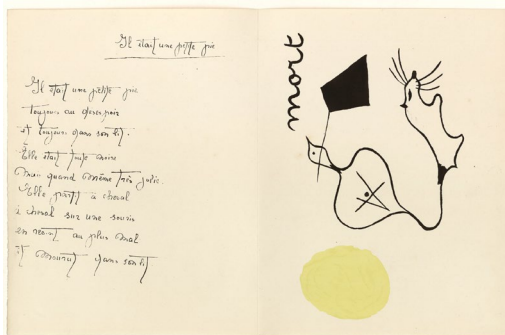 Il était une petite pie
Il était une petite pie
toujours au desespoir
et toujours dans son lit.
Elle était toute noire
mais quand même très jolie.
Elle partit à cheval
à cheval sur une souris
en revint au plus mal
et mourut dans son lit
mort